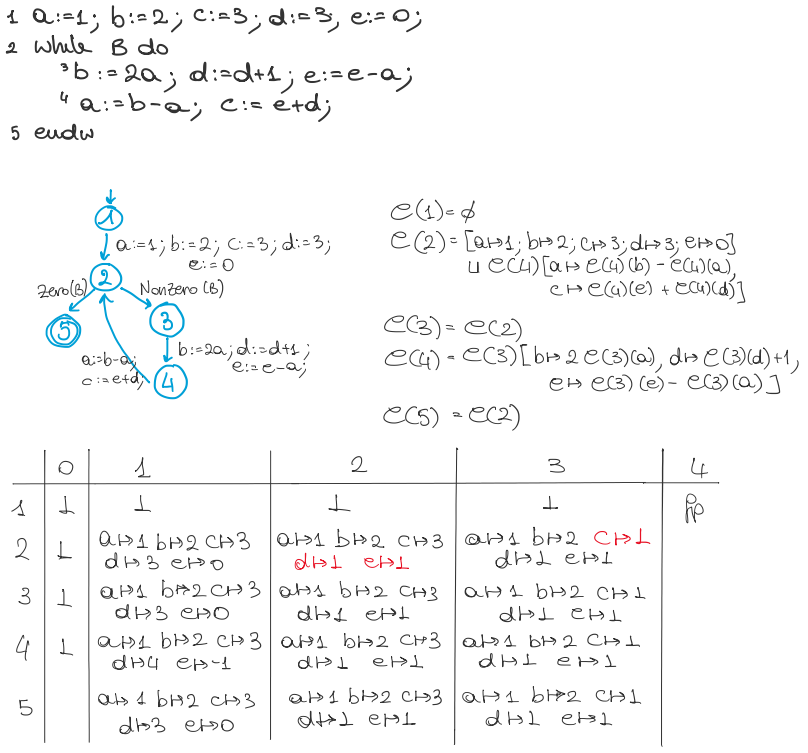 1 a:=1; b:=2; c:=3; d:=3, e:=0;
2 while B do
3 b:=2a; d:=d+1; e:=e-a;
4 a:=b-a; c:=e+d;
5 endw
1
a:=1; b:=2; c:=3; d:=3;
e:=0
2
Zero(B) NonZero(B)
5 3
b:=2a; d:=d+1;
e:=e-a;
a:=b-a;
c:=e+d;
4
e(1)=ϕ
e(2)=[a↦1; b↦2; c↦3; d↦3; e↦0]
⊔ e(4)[a↦e(4)(b)-e(4)(a),
c↦e(4)(e)+e(4)(d)]
e(3)=e(2)
e(4)=e(3)[b↦2e(3)(a), d↦e(3)(d)+1,
e↦e(3)(e)-e(3)(a)]
e(5)=e(2)
0 1 2 3 4
1 ⊥ ⊥ ⊥ ⊥ fp
2 ⊥ a↦1 b↦2 c↦3 a↦1 b↦2 c↦3 a↦1 b↦2 c↦⊥
d↦3 e↦0 d↦⊥ e↦⊥ d↦⊥ e↦⊥
3 ⊥ a↦1 b↦2 c↦3 a↦1 b↦2 c↦3 a↦1 b↦2 c↦⊥
d↦3 e↦0 d↦⊥ e↦⊥ d↦⊥ e↦⊥
4 ⊥ a↦1 b↦2 c↦3 a↦1 b↦2 c↦3 a↦1 b↦2 c↦⊥
d↦4 e↦-1 d↦⊥ e↦⊥ d↦⊥ e↦⊥
5 a↦1 b↦2 c↦3 a↦1 b↦2 c↦3 a↦1 b↦2 c↦⊥
d↦3 e↦0 d↦⊥ e↦⊥ d↦⊥ e↦⊥